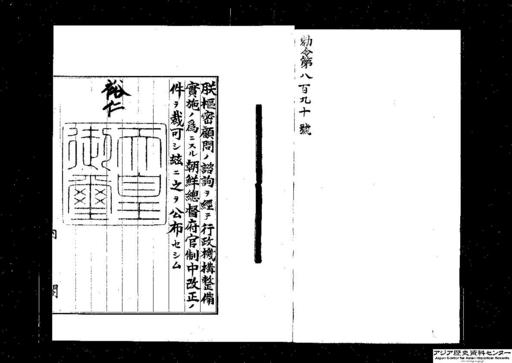 勅令第八百九十號
朕樞密顧問ノ諮詢ヲ經テ行政機構整備
實施ノ爲ニスル朝鮮總督府官制中改正ノ
件ヲ裁可シ玆ニ之ヲ公布セシム
裕仁
天皇御璽
内閣
アジア歴史資料センター
Japan Center for Asian Historical Records